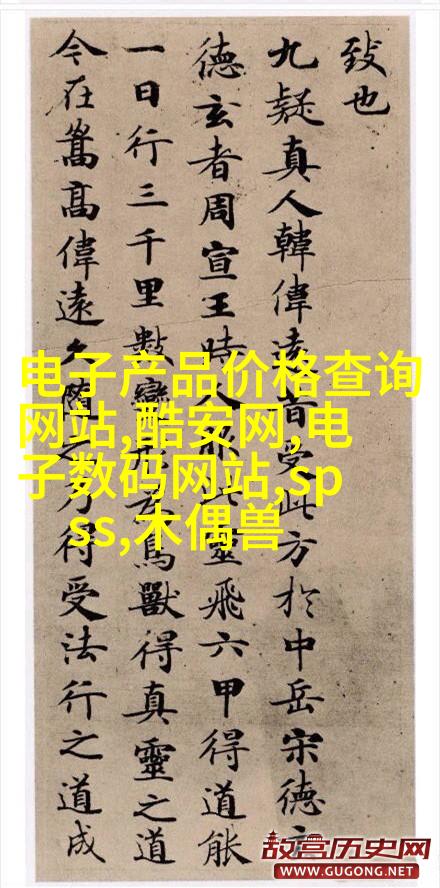 致也
九疑真人韓偉遠昔受此方於中岳宋德玄
德玄者周宣王時人服此靈飛六甲得道能
一日行三千里數變形為鳥獸得真靈之道
今在嵩高偉遠久隨之乃得受法行之道成
电子产品价格查询
网站,酷安网,电
子数码网站,sp
ss,木偶兽
故宫历史网
WWW.GUGONG.NET